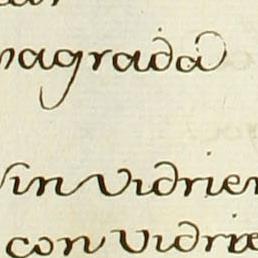 nagrada
Sin vidrier
con vidrie